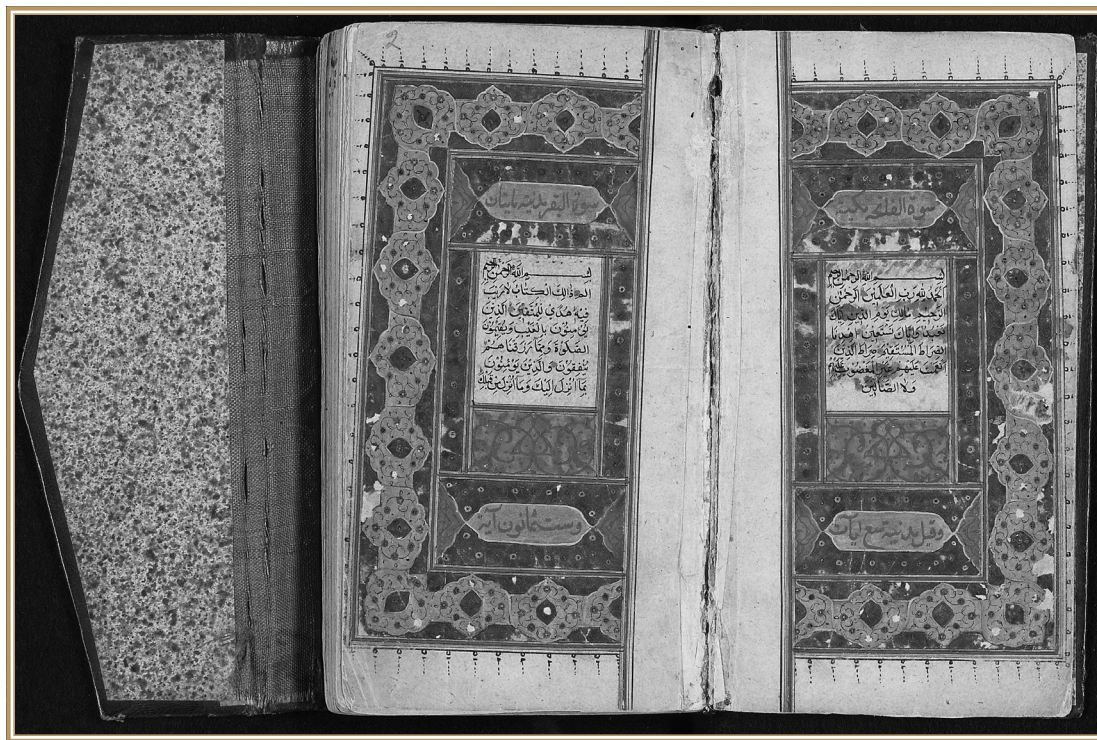 سورة الفاتحة مكية
بسم الله الرحمن الرحيم
الحمد لله رب العالمين الرحمن
الرحيم مالك يوم الدين اياك
نعبد واياك نستعين اهدنا
الصراط المستقيم صراط الذين
انعمت عليهم غير المغضوب عليهم
ولا الضالين
وقيل مدنية سبع ايات
2
سورة البقرة مدنية مايتان
بسم الله الرحمن الرحيم
الم ذالك الكتاب لا ريب
فيه هدى للمتقين الذين
يؤمنون بالغيب ويقيمون
الصلوة ومما رزقناهم
ينفقون والذين يؤمنون
بما انزل اليك وما انزل من قبلك
وست ثمانون آية